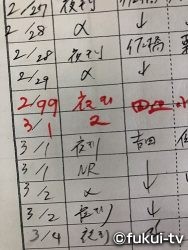 2/27 夜刊
2/28 α ↓
2/28 夜刊
2/29 α ↓
2/99 夜刊
3/1 2
3/1 夜刊 吉田
3/1 NR
3/2 α ↓
3/2 夜刊 ↓
3/4
©fukui-tv